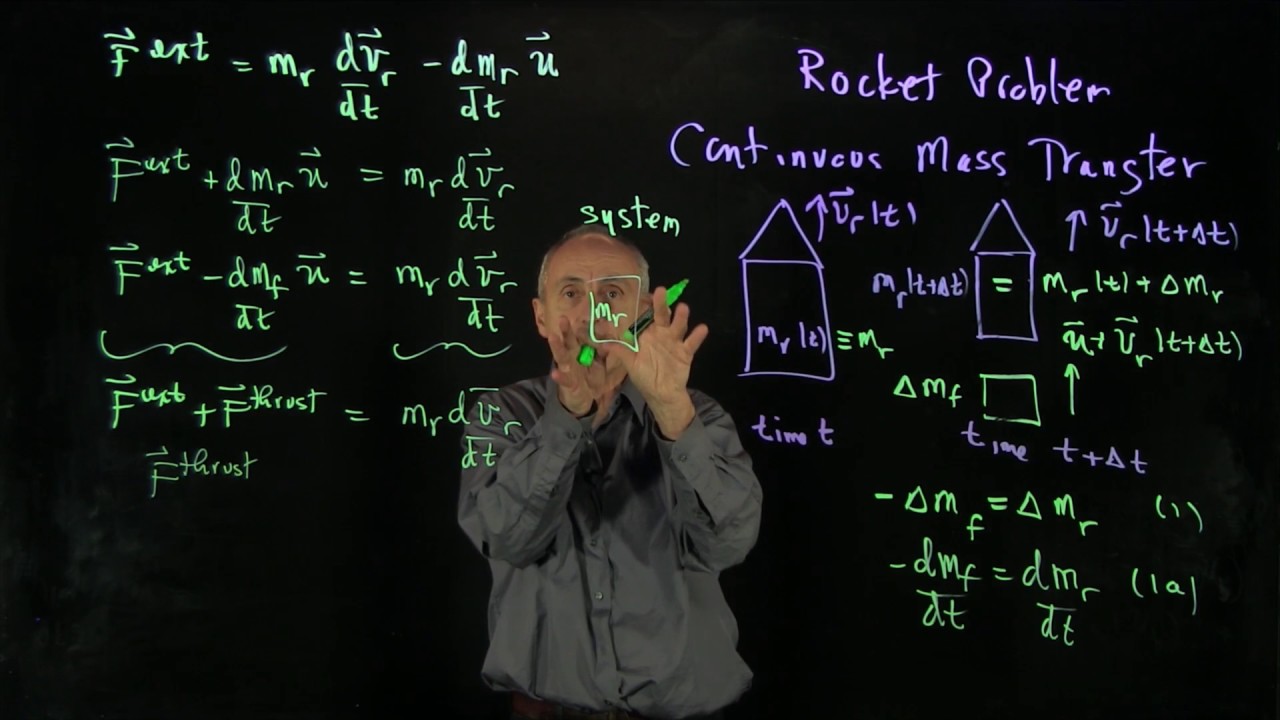 F⃗^ext = m_r dv⃗_r/dt - dm_r/dt u⃗
F⃗^ext + dm_r/dt u⃗ = m_r dv⃗_r/dt
F⃗^ext - dm_f/dt u⃗ = m_r dv⃗_r/dt
F⃗^ext + F⃗^thrust = m_r dv⃗_r/dt
F⃗^thrust
system
m_r
Rocket Problem
Continuous Mass Transfer
v⃗_r(t)
m_r(t) ≡ m_r
time t
v⃗_r(t+Δt)
m_r(t+Δt) = m_r(t) + Δm_r
u⃗ + v⃗_r(t+Δt)
Δm_f
time t+Δt
-Δm_f = Δm_r (1)
-dm_f/dt = dm_r/dt (1a)